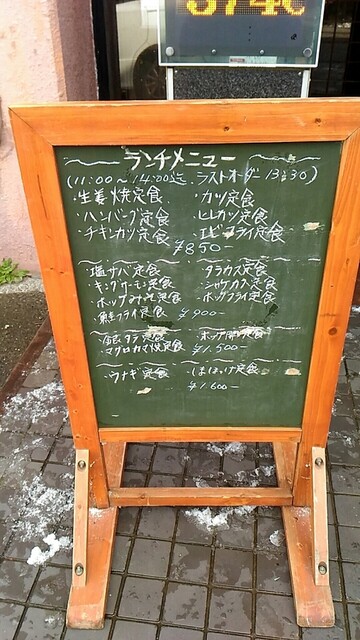 374c
ランチメニュー
(11:00～14:00迄 ラストオーダー13:30)
・生姜焼定食 ・カツ定食
・ハンバーグ定食 ・ヒレカツ定食
・チキンカツ定食 ・エビフライ定食
¥850-
・塩サバ定食 タラカス定食
・キングサーモン定食 シャケカス定食
・ホッケみそ定食 ・ホッケフライ定食
・鮭フライ定食 ¥900-
・銀ダラ定食 ・ホッケ開き定食
・マグロカマ焼定食 ¥1.500-
・ウナギ定食 ・しまほっけ定食
¥1.600-